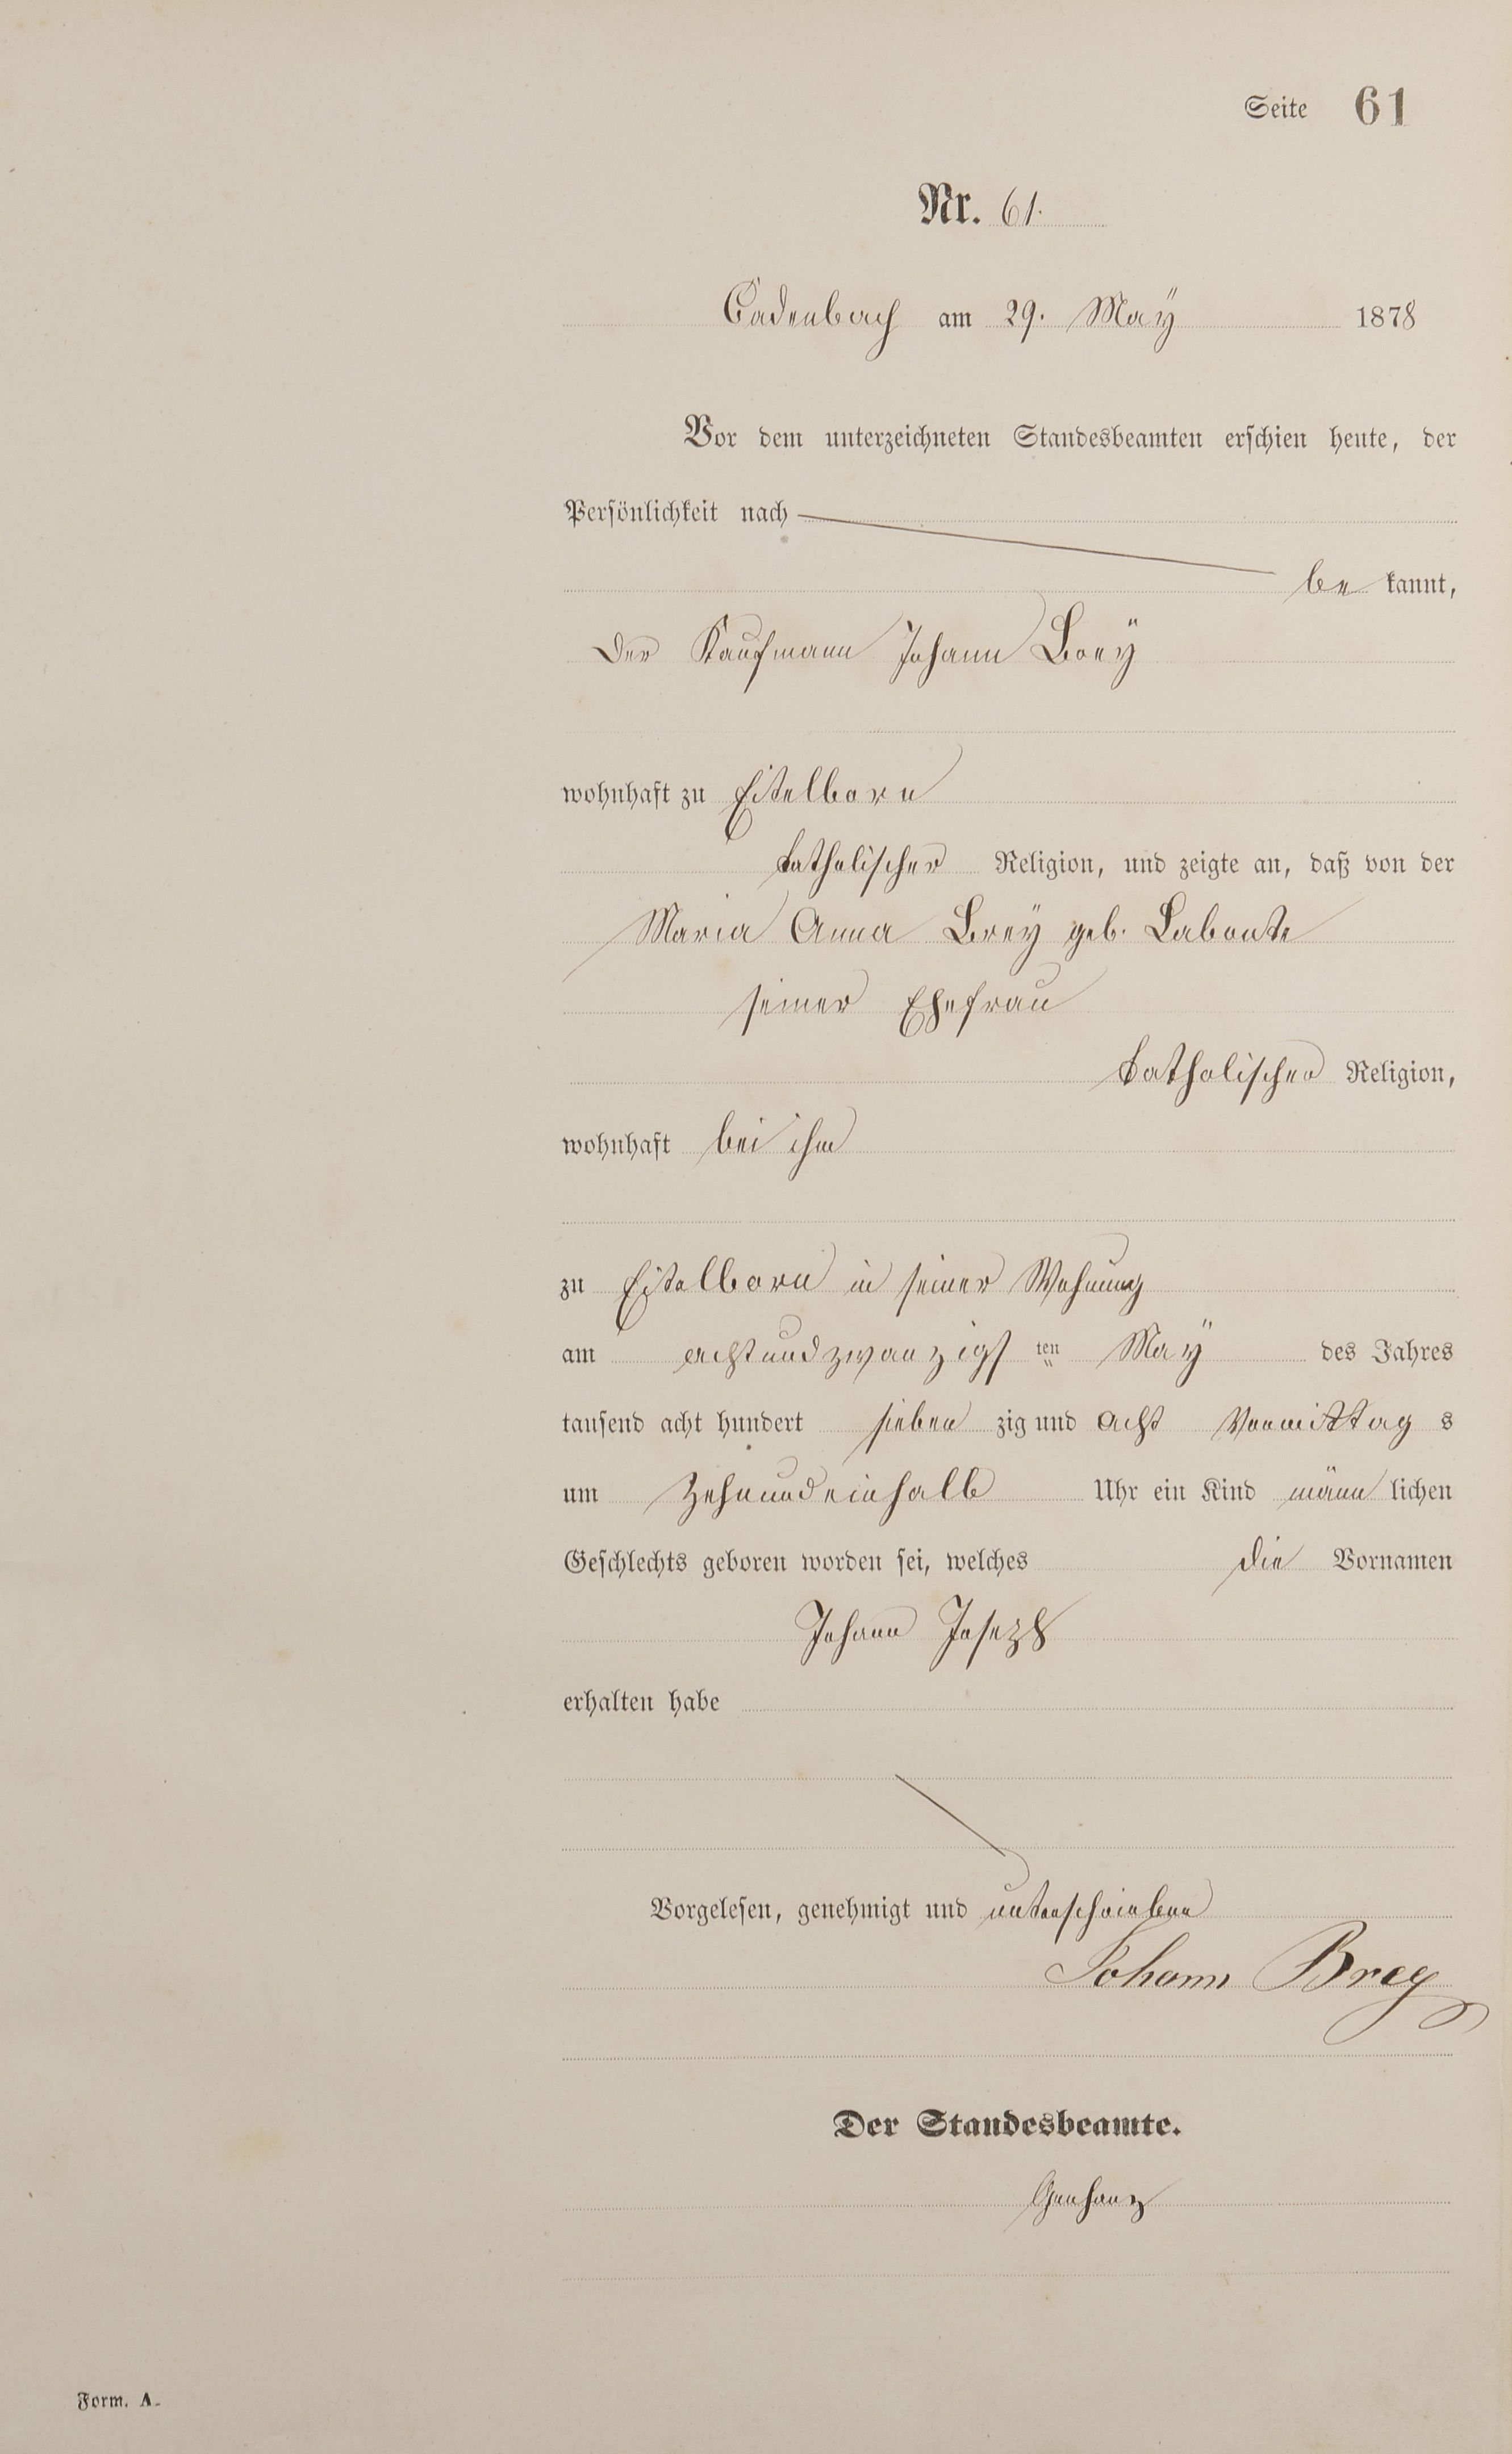 Seite 61
Nr. 61.
Cadenbach am 29. Maÿ 1878
Vor dem unterzeichneten Standesbeamten erschien heute, der
Persönlichkeit nach
be kannt,
der Kaufmann Johann Breÿ
wohnhaft zu Eitelborn
katholischer Religion, und zeigte an, daß von der
Maria Anna Breÿ geb. Labonte
seiner Ehefrau
katholischer Religion,
wohnhaft bei ihm
zu Eitelborn in seiner Wohnung
am achtundzwanzigs ten Maÿ des Jahres
tausend acht hundert sieben zig und acht Vormittag s
um zehnundeinhalb Uhr ein Kind männ lichen
Geschlechts geboren worden sei, welches die Vornamen
Johann Joseph
erhalten habe
Vorgelesen, genehmigt und unterschrieben
Johann Brey
Der Standesbeamte.
Form. A.